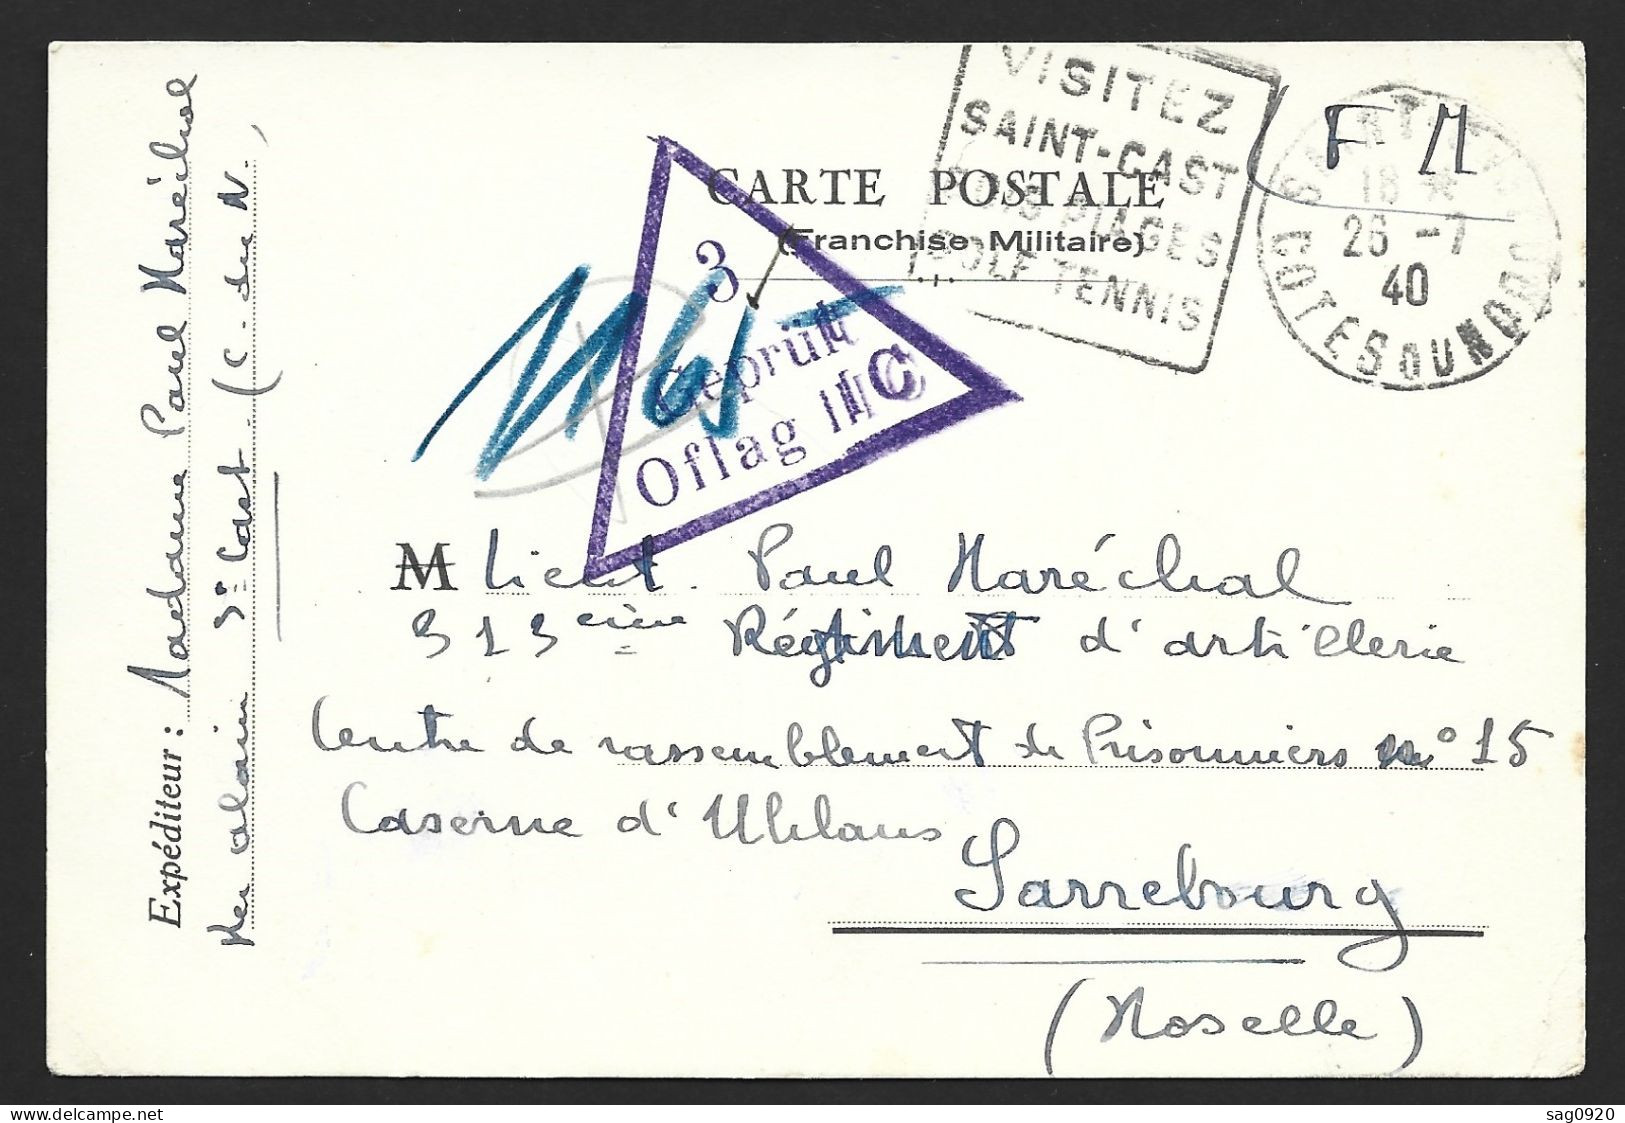 VISITEZ
SAINT-CAST
PLAGES
TENNIS
F M
18 *
26 -7
40
COTES DU NORD
CARTE POSTALE
(Franchise Militaire)
3
Geprüft
Oflag II C
M Lieut. Paul Maréchal
313ème Régiment d'artillerie
Centre de rassemblement de Prisonniers n° 15
Caserne d'Uhlans
Sarrebourg
(Moselle)
Expéditeur : Madame Paul Maréchal
Ker alain St Cast. (C. du N.)
sag0920